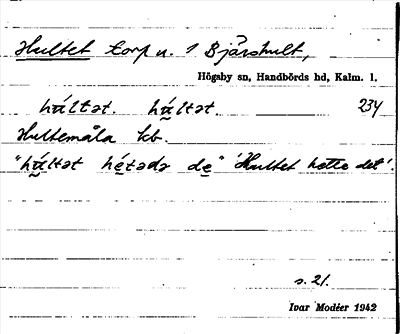 Hultet torp u. 1 Bjärshult,
Högsby sn, Handbörds hd, Kalm. l.
húltət. húltət. 234
Hultemåla kb.
"húltət hétədə de" 'Hultet hette det'.
s. 21.
Ivar Modéer 1942